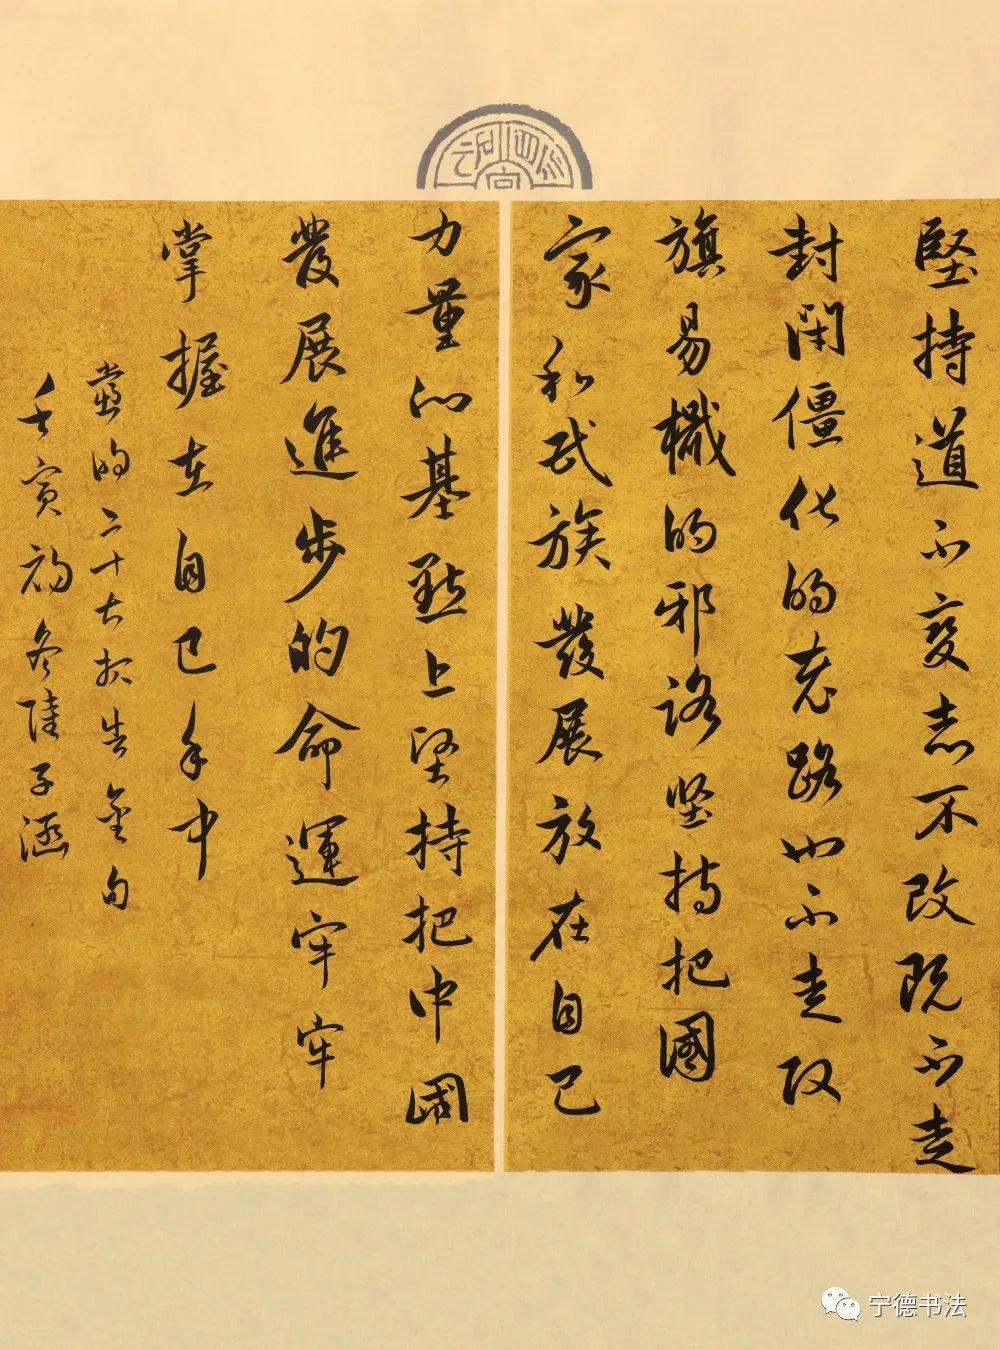 堅持道不變志不改既不走
封閉僵化的老路也不走改
旗易幟的邪路坚持把國
家和民族發展放在自己
力量的基點上坚持把中國
發展進步的命運牢牢
掌握在自己手中
黨的二十大报告金句
壬寅初冬陸子涵
宁德书法